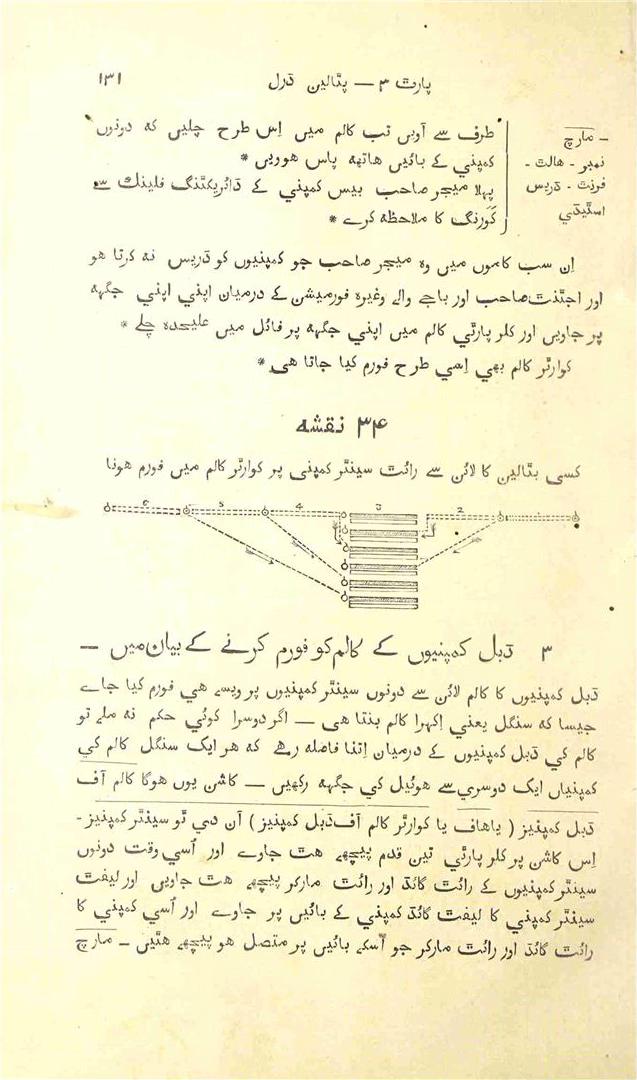 پارٹ ۳ — پٹالین ڈرل
۱۳۱
— مارچ
نمبر - ھالٹ -
فرنٹ - ڈریس
اسٹیڈي
طرف سے آویں تب کالم میں اِس طرح چلیں کہ دونوں
کمپني کے بائیں ھاتھہ پاس ھوویں *
پہلا میجر صاحب بیس کمپني کے ڈائریکٹنگ فلینک سے
کَوَرنگ کا ملاحظہ کرے *
اِن سب کاموں میں وہ میجر صاحب جو کمپنیوں کو ڈریس نہ کرتا ھو
اور اجٹنٹ صاحب اور باجے والے وغیرہ فورمیشن کے درمیان اپني اپني جگہہ
پر جاویں اور کلر پارٹي کالم میں اپني جگہہ پر فائل میں علیحدہ چلے *
کوارٹر کالم بھي اِسي طرح فورم کیا جاتا ھی *
۳۴ نقشہ
کسی بٹالین کا لائن سے رائٹ سینٹر کمپنی پر کوارٹر کالم میں فورم ھونا
۳ ڈبل کمپنیوں کے کالم کو فورم کرنے کے بیان میں —
ڈبل کمپنیوں کا کالم لائن سے دونوں سینٹر کمپنیوں پر ویسے ھي فورم کیا جاے
جیسا کہ سنگل یعني اِکہرا کالم بنتا ھی — اگر دوسرا کوئي حکم نہ ملے تو
کالم کي ڈبل کمپنیوں کے درمیان اِتنا فاصلہ رھے کہ ھر ایک سنگل کالم کي
کمپنیاں ایک دوسري سے ھوئیل کي جگہہ رکھیں — کاشن یوں ھوگا کالم آف
ڈبل کمپنیز ( یا ھاف یا کوارٹر کالم آف ڈبل کمپنیز ) آن دي ٹو سینٹر کمپنیز -
اِس کاشن پر کلر پارٹي تین قدم پیچھے ھٹ جاوے اور اُسي وقت دونوں
سینٹر کمپنیوں کے رائٹ گائڈ اور رائٹ مارکر پیچھے ھٹ جاویں اور لیفٹ
سینٹر کمپنی کا لیفٹ گائڈ کمپني کے بائیں پر جاوے اور اُسي کمپني کا
رائٹ گائڈ اور رائٹ مارکر جو اُسکے بائیں پر متصل ھو پیچھے ھٹیں — مارچ